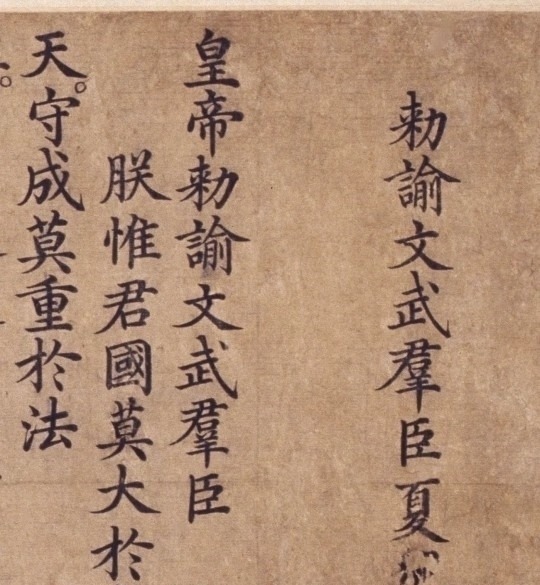 勅諭文武羣臣夏
皇帝勅諭文武羣臣
朕惟君國莫大於
天。守成莫重於法